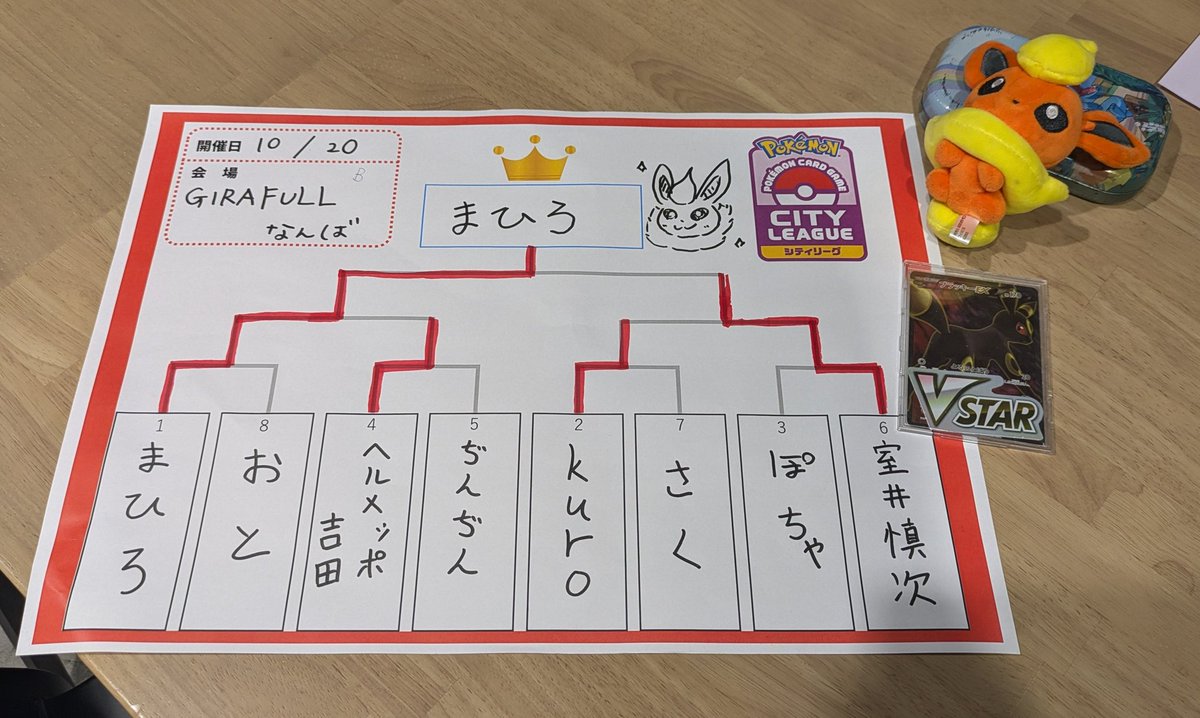 開催日 10 / 20
会場 B
GIRAFULL
なんば
まひろ
POKéMON
POKÉMON CARD GAME
CITY
LEAGUE
シティリーグ
1
まひろ
8
おと
4
ヘルメッポ
吉田
5
ぢんぢん
2
kuro
7
さく
3
ぽちゃ
6
室井慎次
ブラッキーEX
V STAR